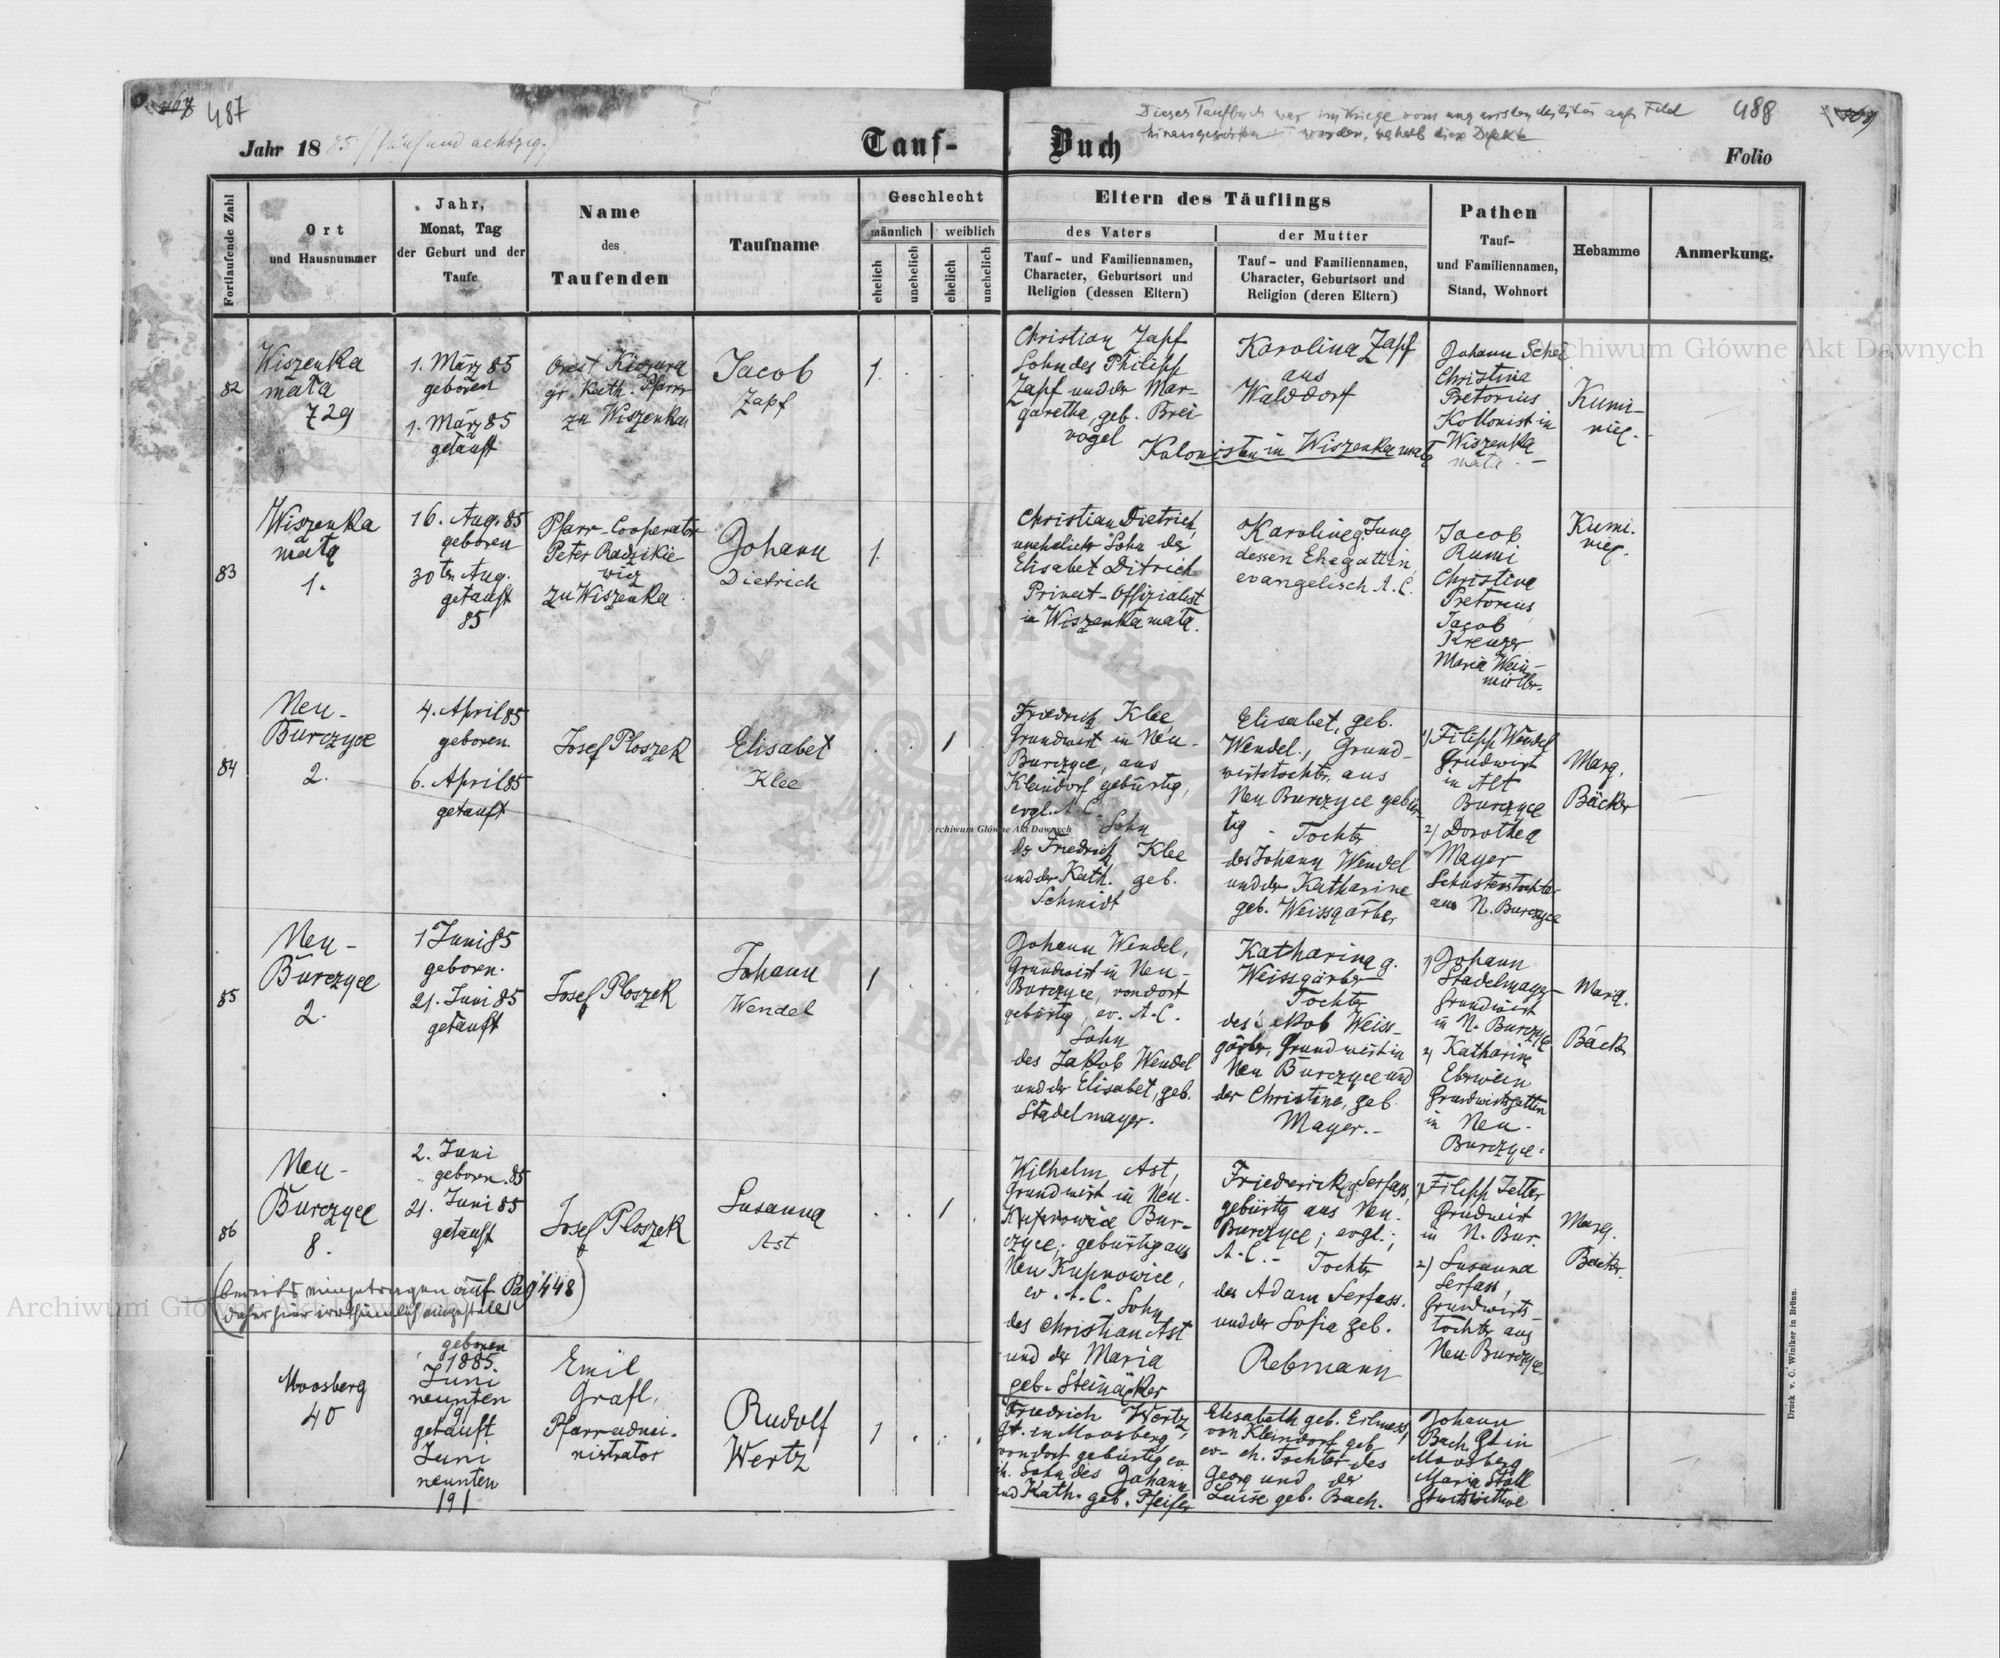 487
Jahr 1885 (fünf und achtzig.)
Tauf-
Fortlaufende Zahl
Ort
und Hausnummer
Jahr,
Monat, Tag
der Geburt und der
Taufe
Name
des
Taufenden
Taufname
Geschlecht
männlich
weiblich
ehelich
unehelich
ehelich
unehelich
82
Wiszenka
mała
729
1. März 85
geboren
1. März 85
getauft
gr. Kath. Pfarrer
zu Wiszenka
Jacob
Zapf
1
83
Wiszenka
mała
1.
16. Aug. 85
geboren
30ten Aug.
getauft
85
Pfarr-Cooperator
Peter Radzikie
wicz
zu Wiszenka
Johann
Dietrich
1
84
Neu-
Burczyce
2.
4. April 85
geboren.
6. April 85
getauft
Josef Ploszek
Elisabet
Klee
1
85
Neu-
Burczyce
2.
1 Juni 85
geboren.
21. Juni 85
getauft
Josef Ploszek
Johann
Wendel
1
86
Neu-
Burczyce
8.
2. Juni
geboren. 85
21. Juni 85
getauft
Josef Ploszek
Susanna
Ast
1
(bereits eingetragen auf Pag 448)
daher hier irrthümlich eingestellt
Moosberg
40
geboren
1885.
Juni
neunten
9
getauft
Juni
neunten
191
Emil
Grafl,
Pfarradmi-
nistrator
Rudolf
Wertz
1
Dieses Taufbuch war im Kriege vom aufs Feld
hinausgeworfen worden, weshalb diese Defekte
488
Buch
Folio
Eltern des Täuflings
des Vaters
Tauf- und Familiennamen,
Character, Geburtsort und
Religion (dessen Eltern)
der Mutter
Tauf- und Familiennamen,
Character, Geburtsort und
Religion (deren Eltern)
Pathen
Tauf-
und Familiennamen,
Stand, Wohnort
Hebamme
Anmerkung.
Christian Zapf
Sohn des Philipp
Zapf und der Mar-
garetha, geb. Brei
vogel
Karolina Zapf
aus
Walddorf
Kolonisten in Wiszenka mała
Johann
Christina
Pretorius
Kollonist in
Wiszenka
mała.
Kumi-
niec.
Christian Dietrich,
unehelich Sohn der
Elisabet Ditrich
Privat-Offizialist
in Wiszenka mała.
Karoline g. Jung
dessen Ehegattin,
evangelisch A. C.
Jacob
Rumi
Christina
Pretorius
Jacob
Kreuzer
Maria Wein-
müller.
Kumi.
niec.
Friedrich Klee
Grundwirt in Neu-
Burczyce, aus
Kleindorf gebürtig,
evgl. A. C. Sohn
des Friedrich Klee
und der Kath. geb.
Schmidt
Elisabet, geb.
Wendel., Grund-
wirtstochter, aus
Neu Burczyce gebür-
tig - Tochter
des Johann Wendel
und der Katharine
geb. Weissgärber
1) Filipp Wendel
Grundwirt
in Alt
Burczyce
2) Dorothea
Mayer
Schusterstochter
aus N. Burczyce
Marg.
Bäcker
Johann Wendel,
Grundwirt in Neu-
Burczyce, von dort
gebürtig, ev. A. C.
Sohn
des Jakob Wendel
und der Elisabet, geb.
Stadelmayer.
Katharina g.
Weissgärber
Tochter
des Jakob Weiss-
gärber, Grundwirt in
Neu Burczyce und
der Christine, geb.
Mayer.-
1) Johann
Stadelmayer
Grundwirt
in N. Burczyce
2) Katharine
Eberwein
Grundwirtsgattin
in Neu-
Burczyce.
Marg.
Bäcker
Wilhelm Ast,
Grundwirt in Neu-
Kupnowice Bur-
czyce; gebürtig aus
Neu Kupnowice,
ev. A. C. Sohn
des Christian Ast
und der Maria
geb. Steinäcker
Friedericke g. Serfass,
gebürtig aus Neu-
Burczyce; evgl.;
A. C. - Tochter
des Adam Serfass.
und der Sofia geb.
Rebmann
1) Filipp Jetter
Grundwirt
in N. Bur.
2) Susanna
Serfass,
Grundwirts-
tochter aus
Neu Burczyce.
Marg.
Bäcker.
Friedrich Wertz
in Moosberg,
von dort gebürtig ev
Sohn des Johann
und Kath. geb. Pfeifer
Elisabeth geb. Eilmess,
von Kleindorf geb
ev- eh. Tochter des
Georg und der
Luise geb. Bach.
Johann
Bach, in
Moosberg
Maria Stoll
Druck v. C. Winiker in Brünn.
Archiwum Główne Akt Dawnych
Archiwum Główne Akt Dawnych
Archiwum Główne Akt Dawnych